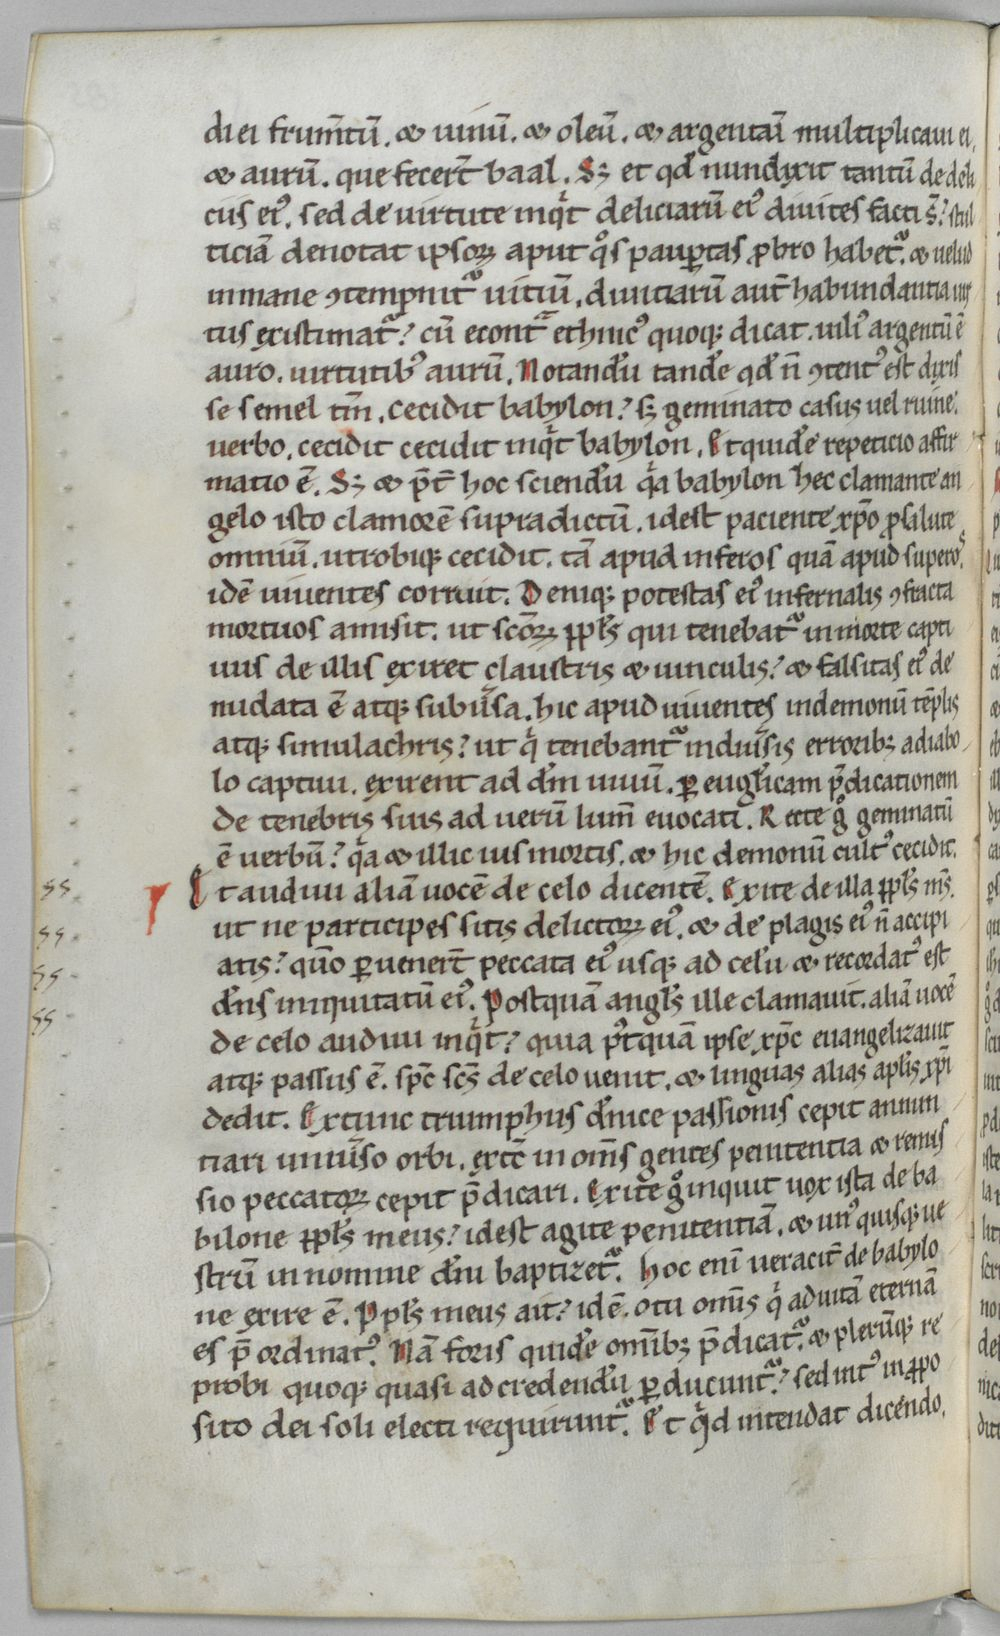 di ei frum̅tu̅. & uinu̅. & oleu̅. & argentu̅ multiplicaui ei.
& auru̅. que fecer̅t baal. Sꝫ et qd̅ nun dixit tantu̅ de deli
ciis eiꝰ. sed de uirtute inqͥt deliciaru̅ eiꝰ diuites facti s̅? stul
ticia̅ denotat ipsoꝝ aput qͦs paup̲tas ꝓbro habet᷑. & uelud
inmane ꝯtempnit᷑ uitiu̅. diuitiaru̅ aut̅ habundantia uir
tus existimat᷑? cu̅ econt᷑ ethnicꝰ quoqꝫ dicat. uiliꝰ argentu̅ e̅
auro. uirtutibꝰ auru̅. Notandu̅ tande̅ qd̅ n̅ ꝯtentꝰ est dixis
se semel tm̅. cecidit babylon? sꝫ geminato casus uel ruine
uerbo. cecidit cecidit inqͥt babylon. Et quide̅ repeticio affir
matio e̅. Sꝫ & p̅t̅ hoc sciendu̅ qͥa babylon hec clamante an
gelo isto clamore̅ supradictu̅. idest paciente xp̅o ꝓ salute
omniu̅. utrobiqꝫ cecidit. ta̅ apud inferos qua̅ apud superos.
ide̅ uiuentes corruit. Deniqꝫ potestas eiꝰ infernalis ꝯfracta
mortuos amisit. ut sc̅oꝝ ppl̅s qui tenebat᷑ in morte capti
uus de illis exiret claustris & uinculis? & falsitas eiꝰ de
nudata e̅ atqꝫ subu̅sa. hic apud uiuentes in demonu̅ te̅plis
atqꝫ simulachris? ut qͥ tenebant᷑ in diu̅sis erroribꝫ a diabo
lo captiui. exirent ad dm̅ uiuu̅. ꝑ eugl̅icam p̅dicationem
de tenebris suis ad ueru̅ lum̅ euocati. Recte gͦ geminatu̅
e̅ uerbu̅? qͥa & illic ius mortis. & hic demonu̅ cultꝰ cecidit.
Et audiui alia̅ uoce̅ de celo dicente̅. Exite de illa ppl̅s m̅s.
ut ne participes sitis delictoꝝ eiꝰ. & de plagis eiꝰ n̅ accipi
atis? qm̅o ꝑuener̅t peccata eiꝰ usqꝫ ad celu̅ & recordatꝰ est
dn̅s iniquitatu̅ eiꝰ. Postqua̅ angl̅s ille clamauit. alia̅ uoce̅
de celo audiui inqͥt? quia p̅tqua̅ ipse xp̅c euangelizauit
atqꝫ passus e̅. sp̅c sc̅s de celo uenit. & linguas alias apl̅is xp̅i
dedit. Extunc triumphus dn̅ice passionis cepit annun
tiari uniu̅so orbi. extc̅ in om̅s gentes penitentia & remis
sio peccatoꝝ cepit p̅dicari. Exite gͦ inquit uox ista de ba
bilone ppl̅s meus? idest agite penitentia̅. & unꝰquisqꝫ ue
stru̅ in nomine dn̅i baptizet᷑. Hoc eni̅ ueracit̅ de babylo
ne exire e̅. Ppl̅s meus ait? id e̅. o tu om̅is qͥ ad uita̅ eterna̅
es p̅ordinatꝰ. Na̅ foris quide̅ om̅ibꝫ p̅dicat᷑. & pleru̅qꝫ re
probi quoqꝫ quasi ad credendu̅ ꝑducunt᷑? sed intꝰ in ꝓpo
sito dei soli electi requirunt᷑. Et qͥd intendat dicendo.